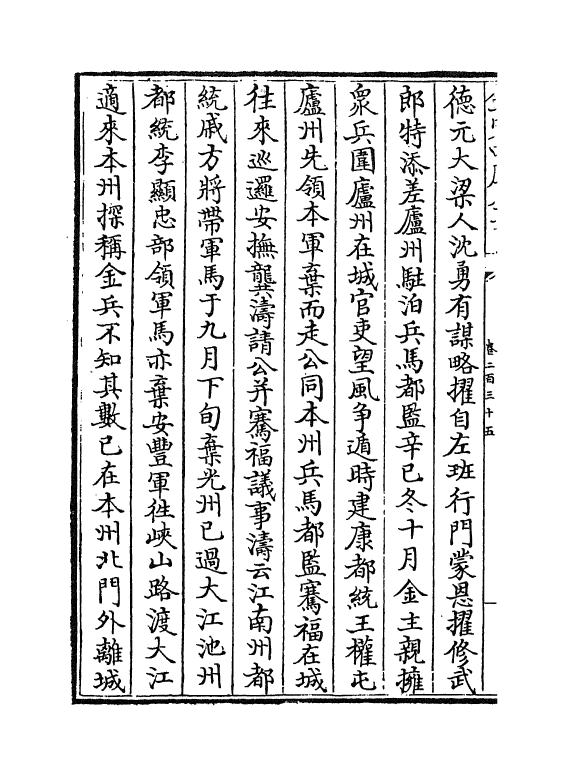 卷二百三十五
德元大梁人沈勇有謀略擢自左班行門蒙恩擢修武
郎特添差廬州駐泊兵馬都監辛已冬十月金主親擁
衆兵圍廬州在城官吏望風争遁時建康都統王權屯
廬州先領本軍棄而走公同本州兵馬都監騫福在城
往來巡邏安撫龔濤請公并騫福議事濤云江南州都
統戚方將帶軍馬于九月下旬棄光州已過大江池州
都統李顯忠部領軍馬亦棄安豐軍往峽山路渡大江
適來本州探稱金兵不知其數已在本州北門外離城